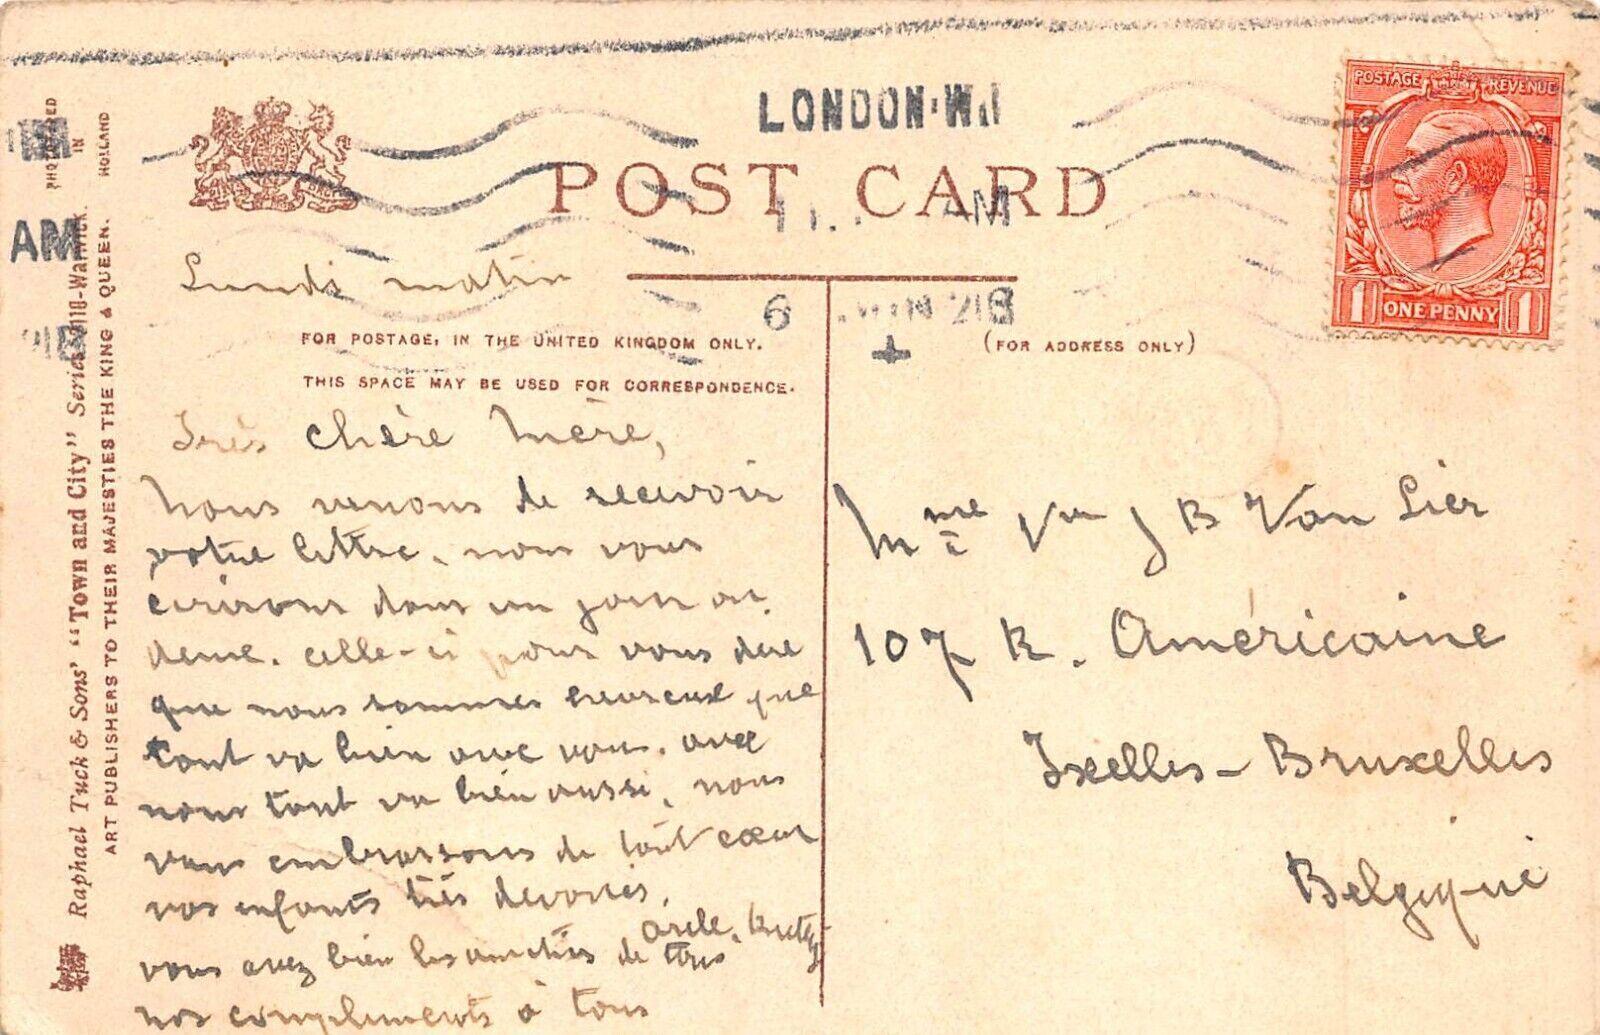 LONDON·W
POST CARD
AM
AM
Lundi matin
6
FOR POSTAGE, IN THE UNITED KINGDOM ONLY.
THIS SPACE MAY BE USED FOR CORRESPONDENCE.
(FOR ADDRESS ONLY)
POSTAGE REVENUE
1 ONE PENNY 1
PHOTOGRAVURED IN HOLLAND
Raphael Tuck & Sons' "Town and City" Series Warwick.
ART PUBLISHERS TO THEIR MAJESTIES THE KING & QUEEN.
Très chère Mère,
Nous venons de recevoir
votre lettre, nous vous
écrirons dans un jour ou
deux. celle-ci pour vous dire
que nous sommes heureux que
tout va bien avec vous. avec
nous tout va bien aussi, nous
vous embrassons de tout cœur
vos enfants très dévoués,
vous avez bien les amitiés de tous
nos compliments à tous
Mme Vve J B Van Lier
107 R. Américaine
Ixelles - Bruxelles
Belgique